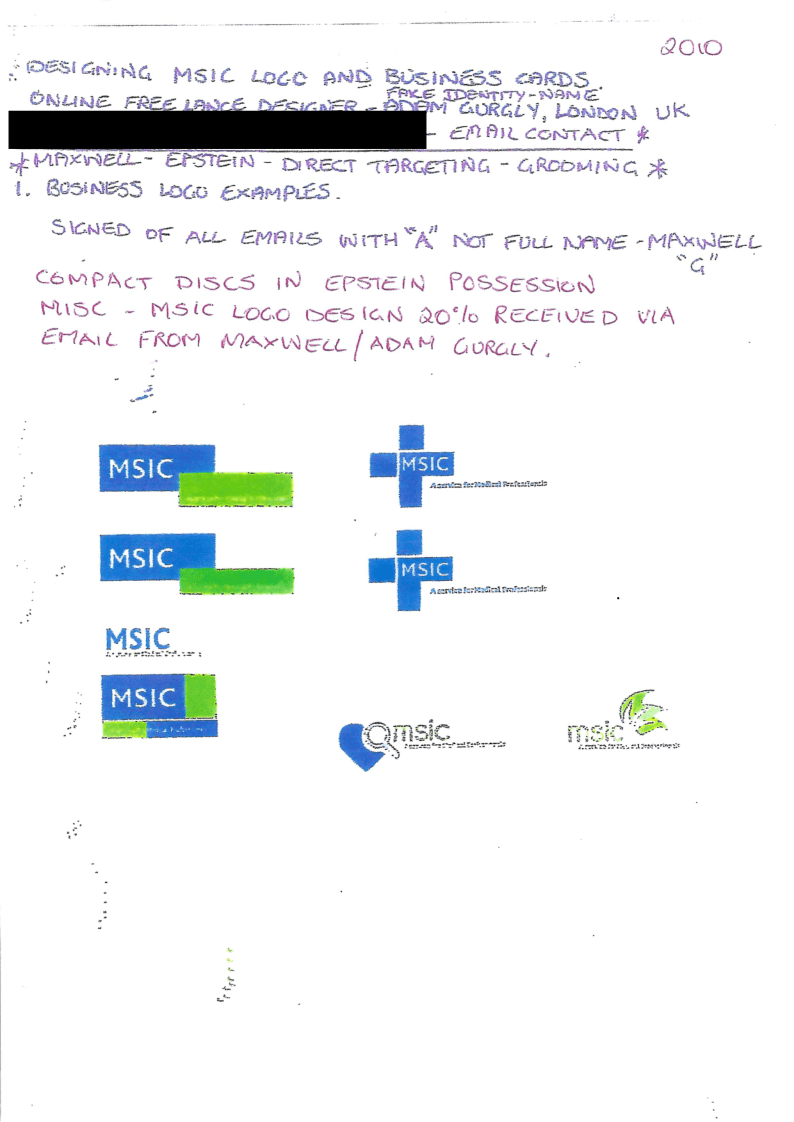 2010
DESIGNING MSIC LOGO AND BUSINESS CARDS.
FAKE IDENTITY-NAME
ONLINE FREE LANCE DESIGNER - ADAM GURGLY, LONDON UK
- EMAIL CONTACT *
*MAXWELL - EPSTEIN - DIRECT TARGETING - GROOMING *
1. BUSINESS LOGO EXAMPLES.
SIGNED OF ALL EMAILS WITH "A" NOT FULL NAME - MAXWELL
"G"
COMPACT DISCS IN EPSTEIN POSSESSION
MISC - MSIC LOGO DESIGN 20% RECEIVED VIA
EMAIL FROM MAXWELL/ADAM GURGLY.
MSIC
MSIC
A service for Medical Professionals
MSIC
MSIC
A service for Medical Professionals
MSIC
MSIC
msic
msic